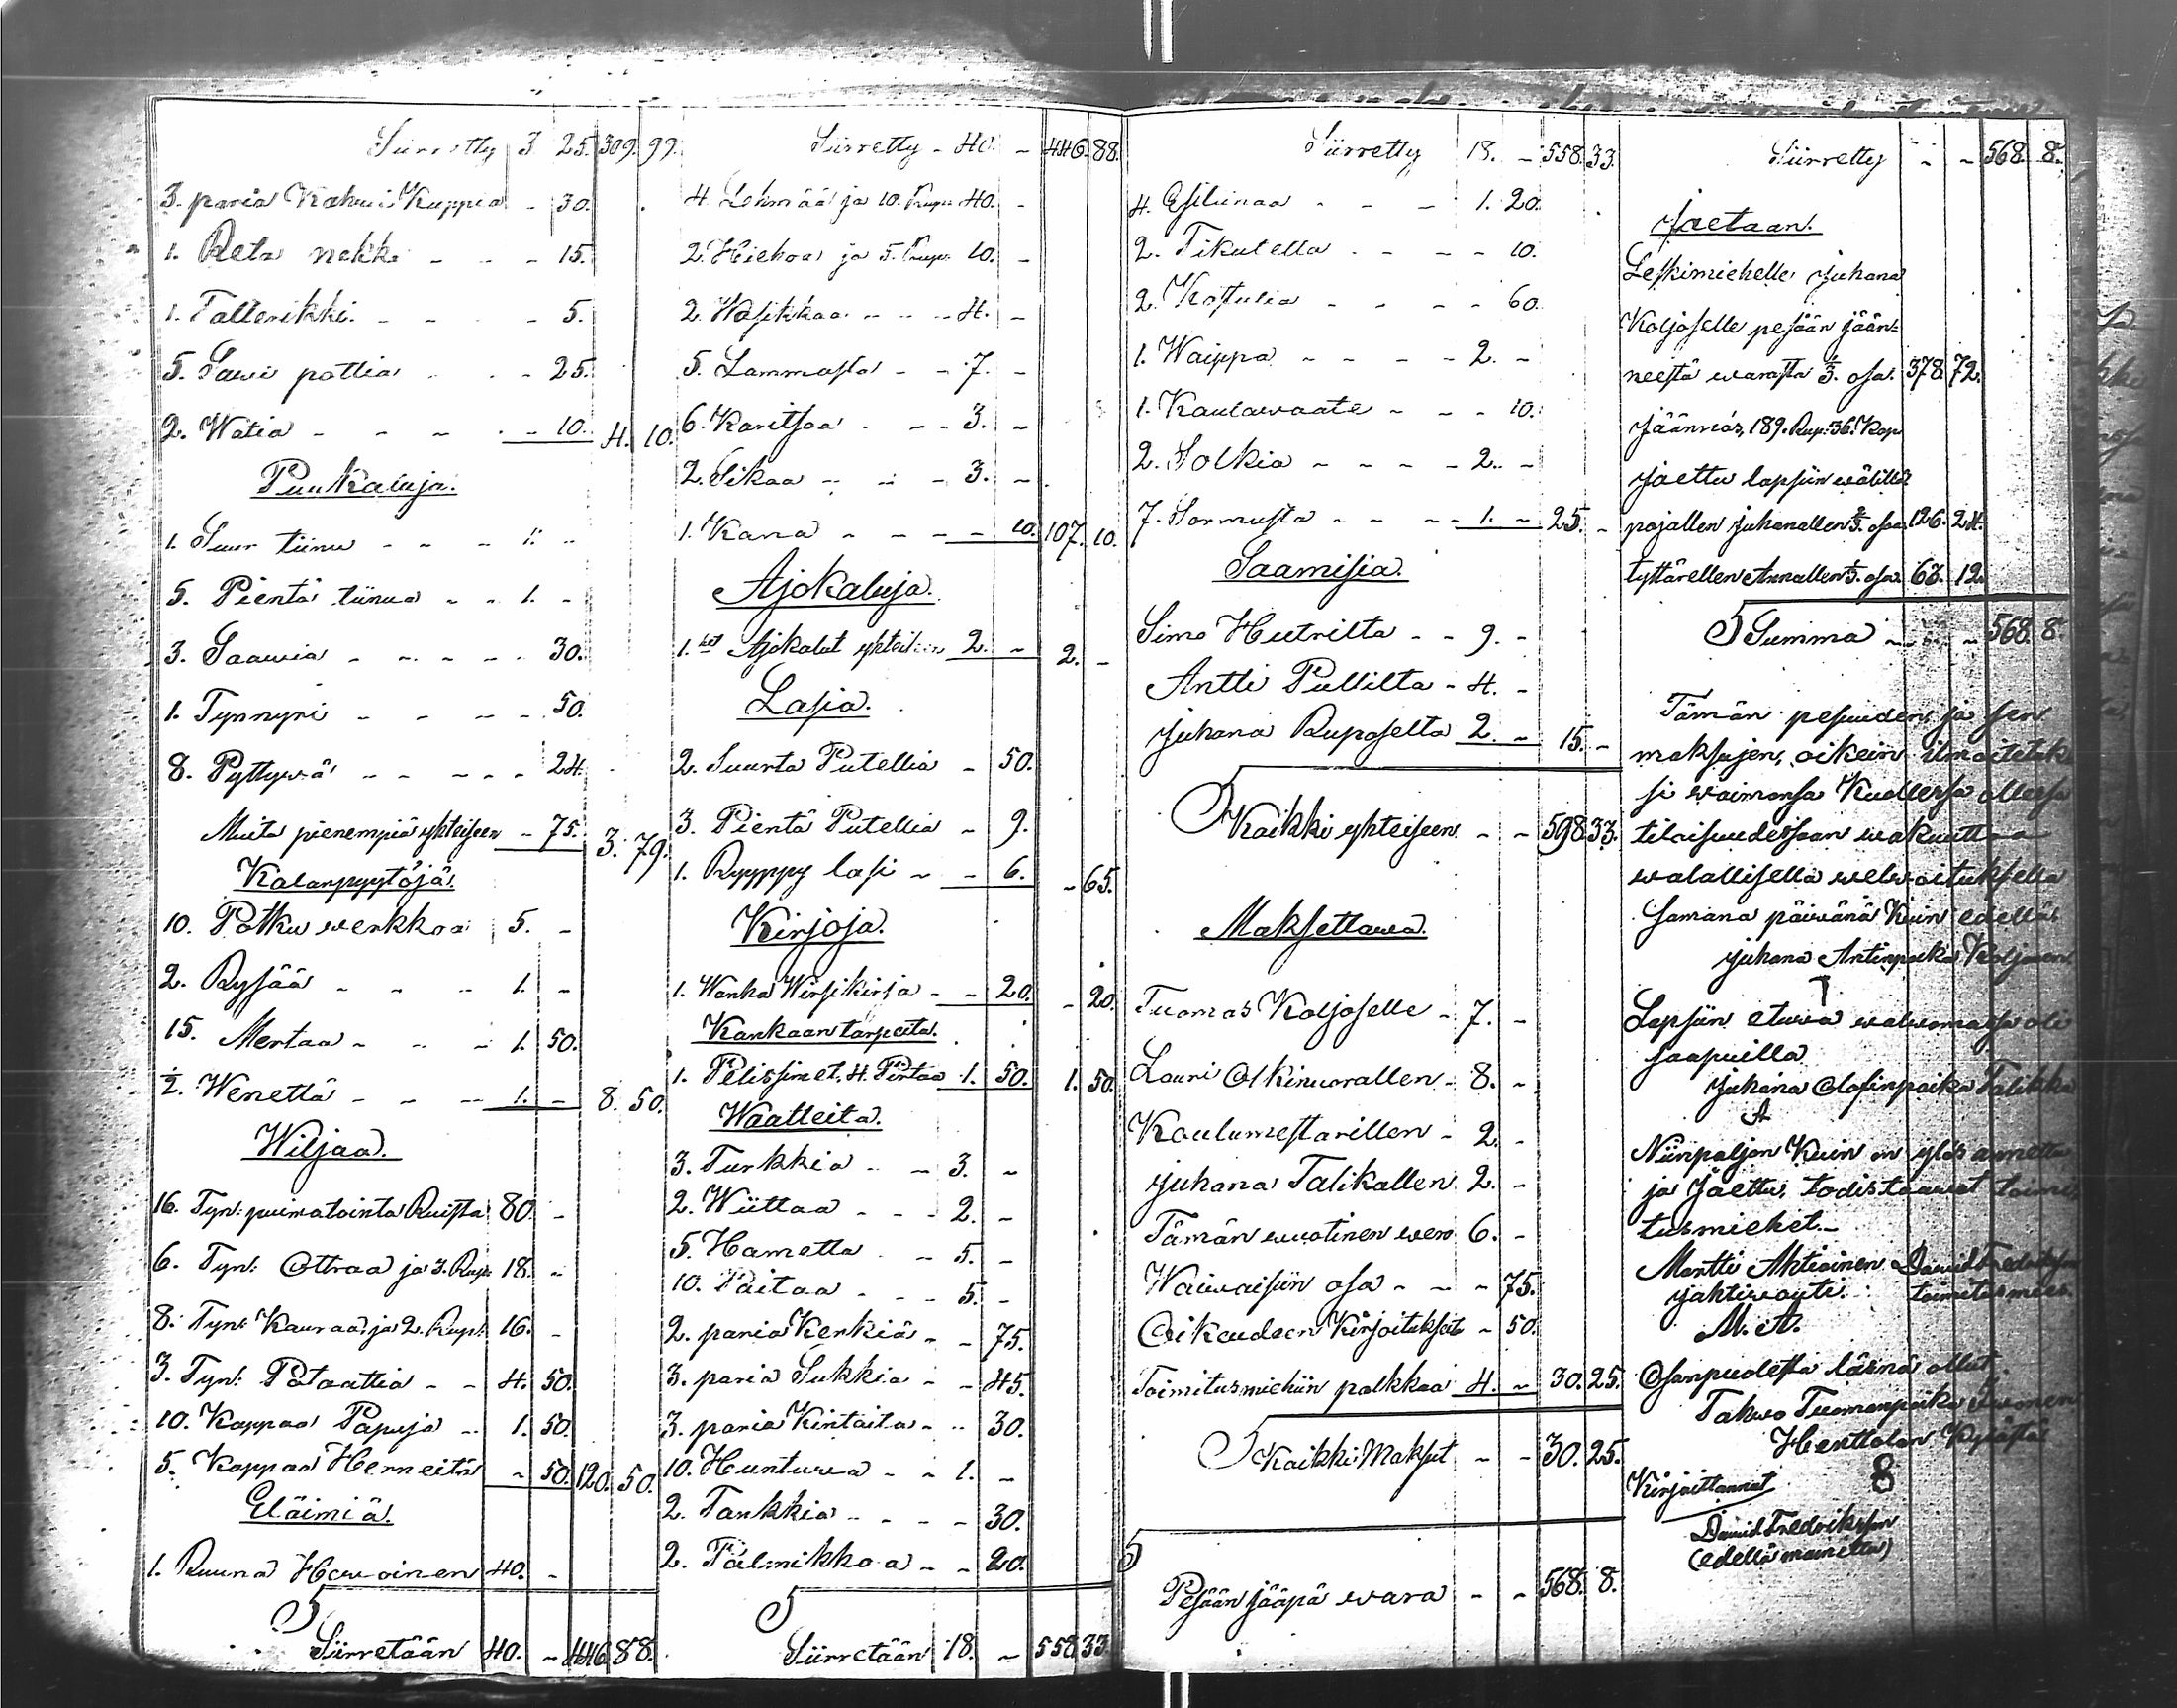 Siirretty 3 25. 309. 99.
3. paria Kahwi Kuppia - 30.
1. Reta nekka - - - 15.
1. Tallerikki. - - - 5.
5. Sawi pottia - - 25.
2. Watia - - - - 10. 4. 10.
Puukaluja.
1. Suur tiinu - - - 1. -
5. Pientä tiinua - - 1. -
3. Saawia - - - - 30.
1. Tynnyri - - - - 50.
8. Pyttywä - - - - 24.
Muita pienempiä yhteiseen - 75. 3. 79.
Kalanpyytöjä.
10. Potku werkkoa 5. -
2. Rysää - - - 1. -
15. Mertaa - - - 1. 50.
1/2. Wenettä - - - 1. - 8. 50.
Wiljaa.
16. Tyn: puimatointa Ruista 80. -
6. Tyn: Ottraa ja 3. Rup: 18. -
8. Tyn: Kauraa ja 2. Rupl: 16. -
3. Tyn: Pataattia - - 4. 50.
10. Kappaa Papuja - 1. 50.
5. Kappaa Herneitä - 50. 120. 50.
Eläimiä.
1. Ruuna Hewoinen 40. -
Siirretään 40. - 446. 88.
Siirretty - 40. - 446. 88.
4. Lehmää ja 10. Rupl: 40. -
2. Hiehoa ja 5. Rup: 10. -
2. Wasikkaa - - - 4. -
5. Lammasta - - 7. -
6. Karitsaa - - - 3. -
2. Sikaa - - - 3. -
1. Kana - - - - 10. 107. 10.
Ajokaluja.
1. Ajokalut yhteiseen 2. - 2. -
Lasia.
2. Suurta Putellia - 50.
3. Pientä Putellia - 9.
1. Ryyppy lasi - - 6. - 65.
Kirjoja.
1. Wanha Wirsikirja - - 20. - 20.
Kankaantarpeita.
1. 4. Pirtaa 1. 50. 1. 50.
Waatteita.
3. Turkkia - - 3. -
2. Wiittaa - - - 2. -
5. Hametta - - 5. -
10. Paitaa - - - 5. -
2. paria Kenkiä - - 75.
3. paria Sukkia - - 45.
3. paria Kintaita - - 30.
10. Huntuwa - - 1. -
2. Tankkia - - - - 30.
2. Palmikkoa - - 20.
Siirretään 18. - 558. 33.
Siirretty 18. - 558. 33.
4. Esiliinaa - - - 1. 20.
2. Tikutella - - - 10.
2. Kostulia - - - - 60.
1. Waippa - - - - 2. -
1. Kaulawaate - - - 10.
2. Solkia - - - - 2. -
7. Sormusta - - - 1. - 25. -
Saamisia.
Simo Hutrilta - - 9. -
Antti Pullilta - 4. -
Juhana Ruposelta 2. - 15. -
Kaikki yhteiseen - - 598. 33.
Maksettawa.
Tuomas Koljoselle - 7. -
Lauri Olkinuorallen - 8. -
Koulumestarillen - 2. -
Juhana Talikallen 2. -
Tämän wuotinen wero 6. -
Waiwaisiin osa - - - 75.
Oikeudeen Kirjoitukset - 50.
Toimitusmiehiin palkkaa 4. - 30. 25.
Kaikki Maksut - - 30. 25.
Pesään jääpä wara - - 568. 8.
Siirretty - - 568. 8.
Jaetaan.
Leskimiehelle Juhana
Koljoselle pesään jään=
neestä warasta 2/3. osa. 378. 72.
Jäännös, 189. Rup: 36. Kop
jaettu lapsiin wälillä
pojallen Juhanallen 2/3. osaa 126. 24.
tyttärellen Annallen 1/3. osa. 63. 12.
Summa - - - 568. 8.
Tämän pesuuden ja sen
maksujen, oikein ilmoitetuk
si waimonsa Kuollessa
tilaisuudessaan wakuuttaa
walallisella welwoituksella
samana päiwänä Kuin edellä
Juhana Antinpoika Koljonen
Lapsiin etuwa walwomassa oli
saapuilla
Juhana Olafinpoika Talikka
Niinpaljon Kuin on ylös annettu
ja Jaettu, todistaawat toimi
tusmiehet.-
Martti Ahtiainen David Fredriksson
jahtiwouti. toimitusmies.
M. A.
Osanpuolesta läsnä ollut
Tahwo Tuomanpoika
Henttalan Kylästä
Kirjoittannut
David Fredriksson
(edellä mainettu)